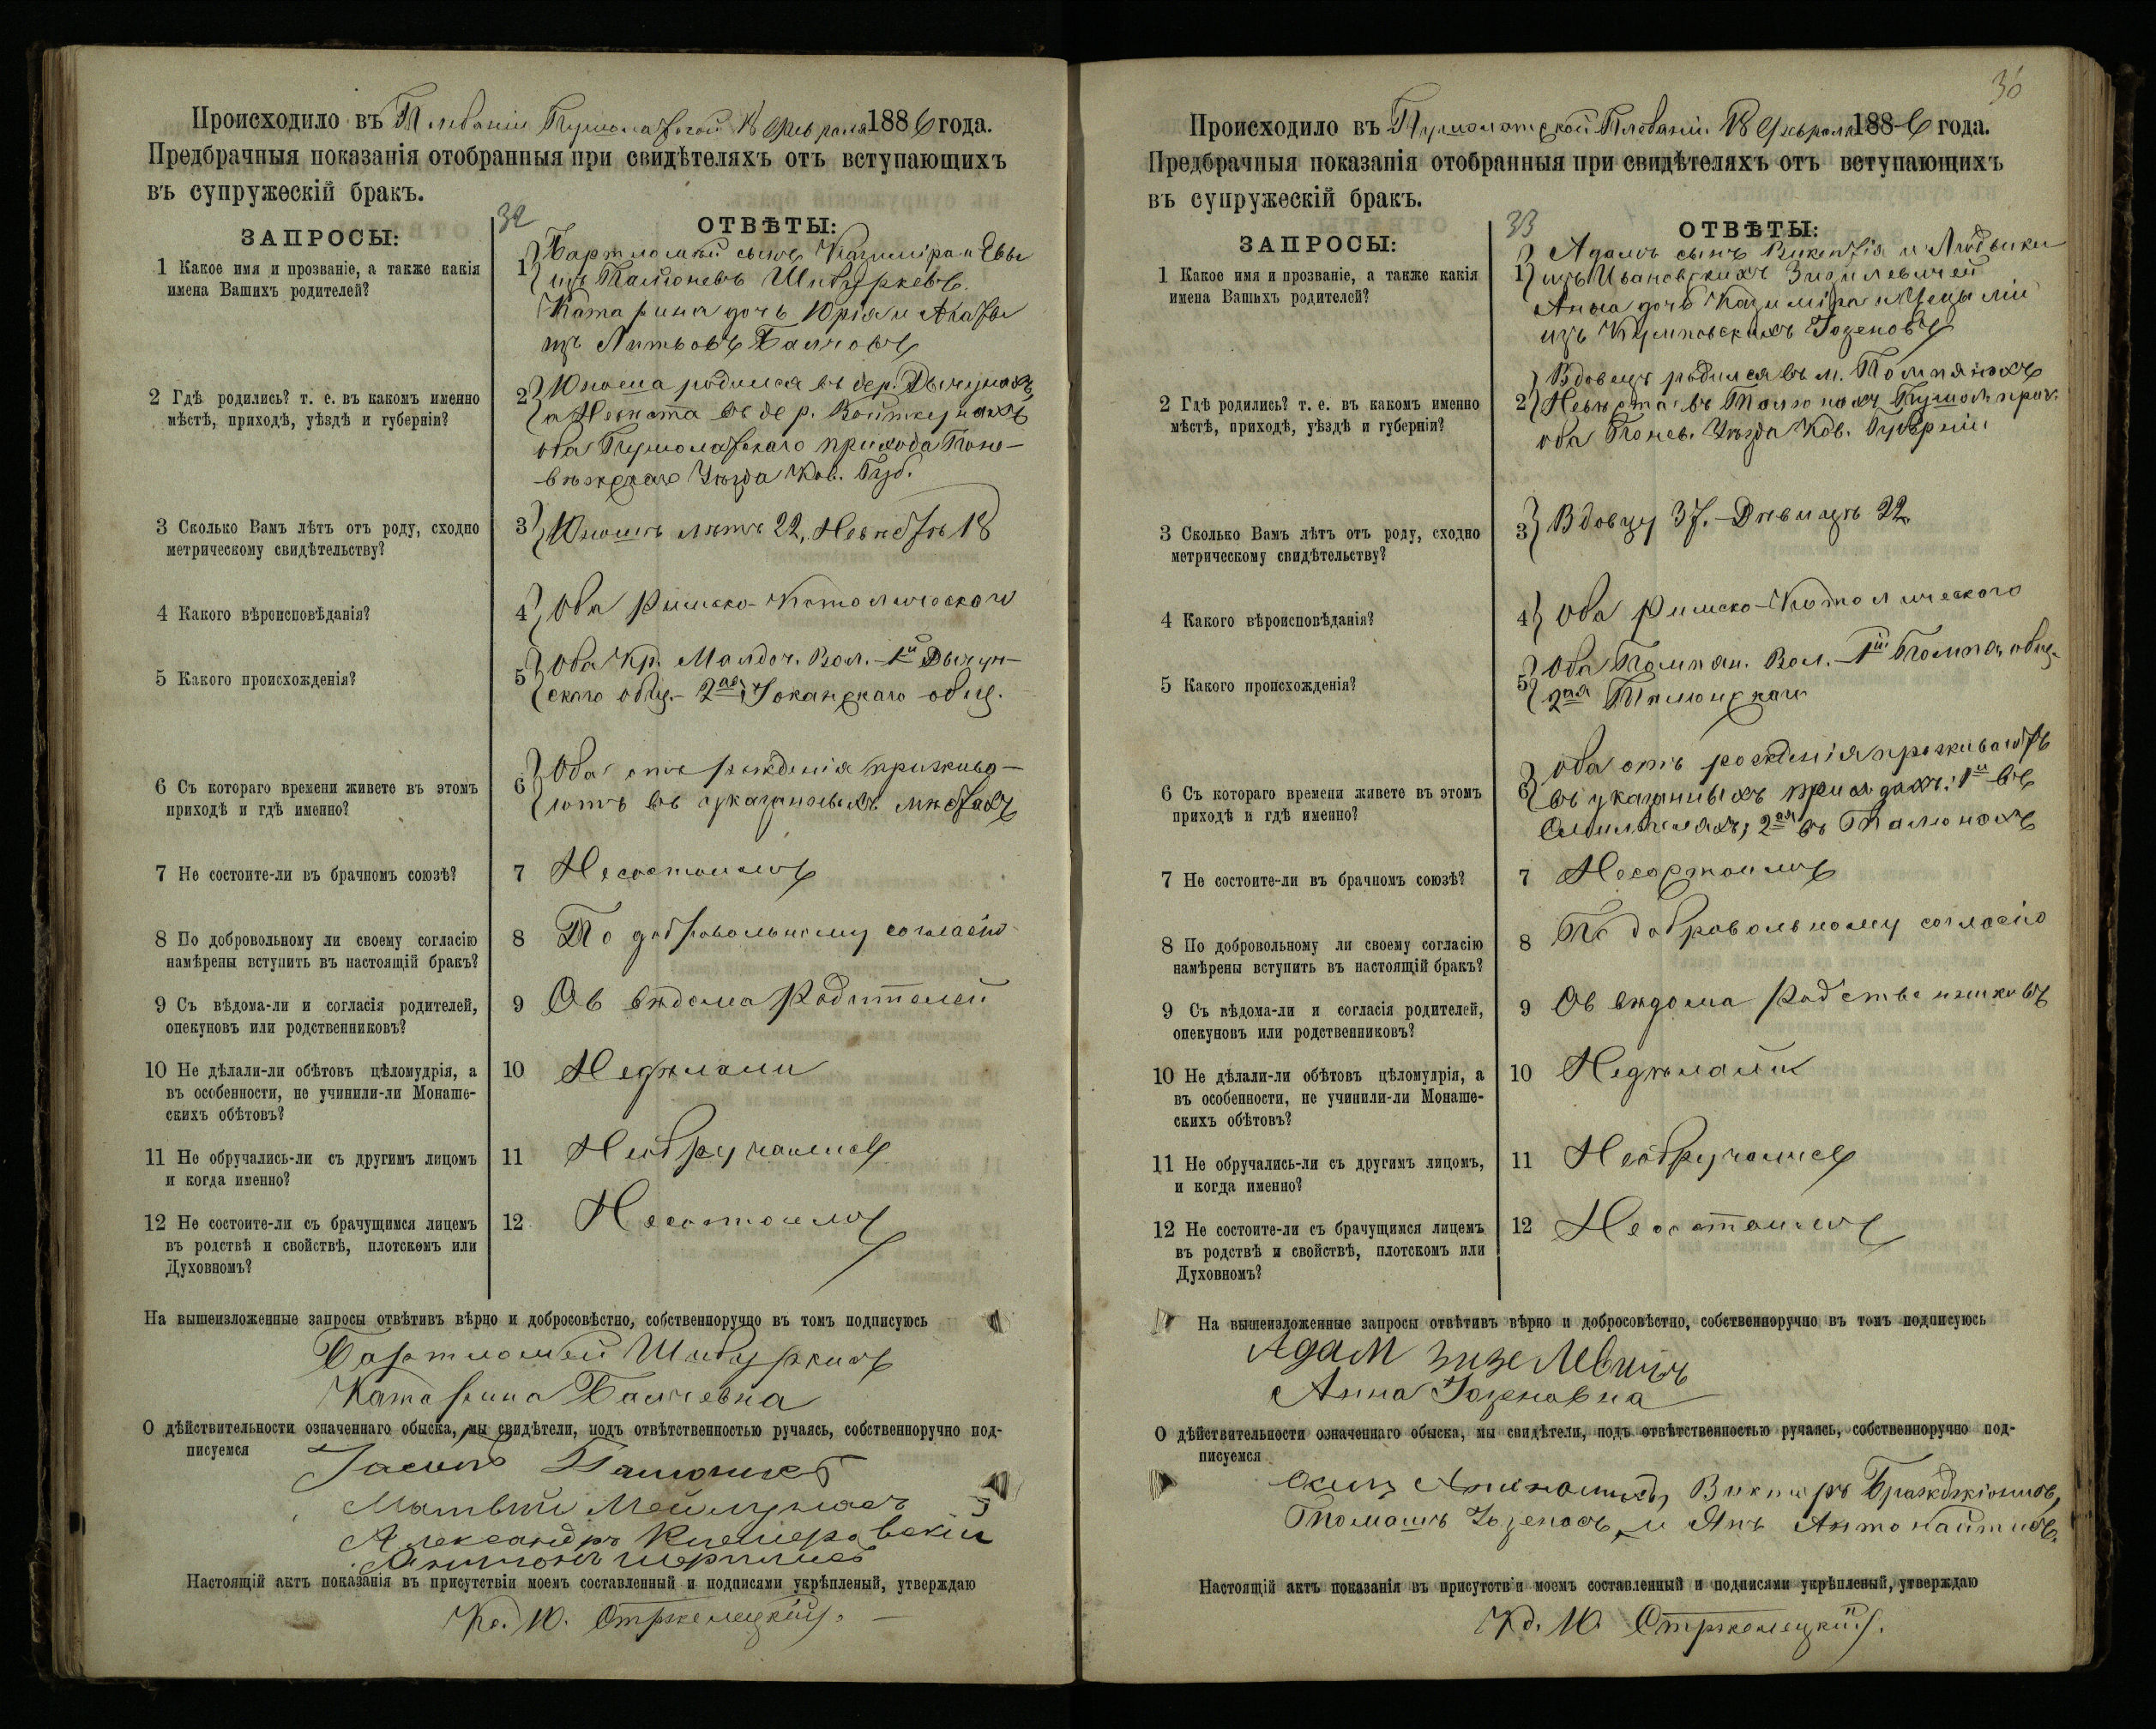 Происходило въ Плебаніи Пушолатской 18 Февраля 1886 года.
Предбрачныя показанія отобранныя при свидѣтеляхъ отъ вступающихъ
въ супружескій бракъ.
32
ЗАПРОСЫ:
ОТВѢТЫ:
1 Какое имя и прозваніе, а также какія
имена Вашихъ родителей?
1 Бартломей сынъ Казиміра и Евы
изъ
Катарина дочь Юрія и Агаты
изъ
2 Гдѣ родились? т. е. въ какомъ именно
мѣстѣ, приходѣ, уѣздѣ и губерніи?
2 Юноша родился въ дер.
а Невѣста въ дер.
оба Пушолатскаго прихода Поне-
вѣжскаго Уѣзда Ков. Губ.
3 Сколько Вамъ лѣтъ отъ роду, сходно
метрическому свидѣтельству?
3 Юношѣ лѣтъ 22, Невѣстѣ 18
4 Какого вѣроисповѣданія?
4 Оба Римско-Католическаго
5 Какого происхожденія?
5 Оба Кр. Вол. – 1й
скаго общ. – 2ая общ.
6 Съ котораго времени живете въ этомъ
приходѣ и гдѣ именно?
6 Оба отъ рожденія прожива-
ютъ въ указанныхъ мѣстахъ
7 Не состоите-ли въ брачномъ союзѣ?
7 Несостоимъ
8 По добровольному ли своему согласію
намѣрены вступить въ настоящій бракъ?
8 По добровольному согласію
9 Съ вѣдома-ли и согласія родителей,
опекуновъ или родственниковъ?
9 Съ вѣдома Родителей
10 Не дѣлали-ли обѣтовъ цѣломудрія, а
въ особенности, не учинили-ли Монаше-
скихъ обѣтовъ?
10 Недѣлали
11 Не обручались-ли съ другимъ лицомъ
и когда именно?
11 Необручались
12 Не состоите-ли съ брачущимся лицемъ
въ родствѣ и свойствѣ, плотскомъ или
Духовномъ?
12 Несостоимъ
На вышеизложенные запросы отвѣтивъ вѣрно и добросовѣстно, собственноручно въ томъ подписуюсь
Бартломей
Катарина
О дѣйствительности означеннаго обыска, мы свидѣтели, подъ отвѣтственностью ручаясь, собственноручно под-
писуемся
Матвѣй
Александръ
Настоящій актъ показанія въ присутствіи моемъ составленный и подписями укрѣпленый, утверждаю
Кс. Ю. Стржемецкій.
36
Происходило въ Пушолатской Плебаніи 18 Февраля 1886 года.
Предбрачныя показанія отобранныя при свидѣтеляхъ отъ вступающихъ
въ супружескій бракъ.
33
ЗАПРОСЫ:
ОТВѢТЫ:
1 Какое имя и прозваніе, а также какія
имена Вашихъ родителей?
1 Адамъ сынъ Викентія и Людвики
изъ Ивановскихъ Зизилевичей
Анна дочь Казиміра и
изъ Іозеновъ
2 Гдѣ родились? т. е. въ какомъ именно
мѣстѣ, приходѣ, уѣздѣ и губерніи?
2 Вдовецъ родился въ м. Помпянахъ
Невѣста въ Пушол. прих.
оба Понев. Уѣзда Ков. Губерніи
3 Сколько Вамъ лѣтъ отъ роду, сходно
метрическому свидѣтельству?
3 Вдовцу 37. – Дѣвицѣ 22.
4 Какого вѣроисповѣданія?
4 Оба Римско-Католическаго
5 Какого происхожденія?
5 Оба Помпян. Вол. – 1й Помпян. общ.
2ая
6 Съ котораго времени живете въ этомъ
приходѣ и гдѣ именно?
6 Оба отъ рожденія проживаютъ
въ указанныхъ приходахъ: 1й въ
2ая въ
7 Не состоите-ли въ брачномъ союзѣ?
7 Несостоимъ
8 По добровольному ли своему согласію
намѣрены вступить въ настоящій бракъ?
8 По добровольному согласію
9 Съ вѣдома-ли и согласія родителей,
опекуновъ или родственниковъ?
9 Съ вѣдома Родственниковъ
10 Не дѣлали-ли обѣтовъ цѣломудрія, а
въ особенности, не учинили-ли Монаше-
скихъ обѣтовъ?
10 Недѣлали
11 Не обручались-ли съ другимъ лицомъ,
и когда именно?
11 Необручались
12 Не состоите-ли съ брачущимся лицемъ
въ родствѣ и свойствѣ, плотскомъ или
Духовномъ?
12 Несостоимъ
На вышеизложенные запросы отвѣтивъ вѣрно и добросовѣстно, собственноручно въ томъ подписуюсь
Адам Зизелевичъ
Анна Іозеновна
О дѣйствительности означеннаго обыска, мы свидѣтели, подъ отвѣтственностью ручаясь, собственноручно под-
писуемся
Викторъ
Томашъ и Янъ
Настоящій актъ показанія въ присутствіи моемъ составленный и подписями укрѣпленый, утверждаю
Кс. Ю. Стржемецкій.